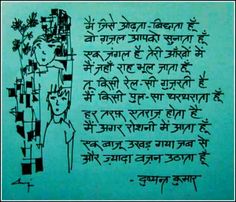 मैं जिसे ओढ़ता-बिछाता हूँ
वो ग़ज़ल आपको सुनाता हूँ
एक जंगल है तेरी आँखों में
मैं जहाँ राह भूल जाता हूँ
तू किसी रेल-सी गुज़रती है
मैं किसी पुल-सा थरथराता हूँ
हर तरफ़ एतराज़ होता है
मैं अगर रोशनी में आता हूँ
एक बाजू उखड़ गया जब से
और ज़्यादा वज़न उठाता हूँ
- दुष्यन्त कुमार